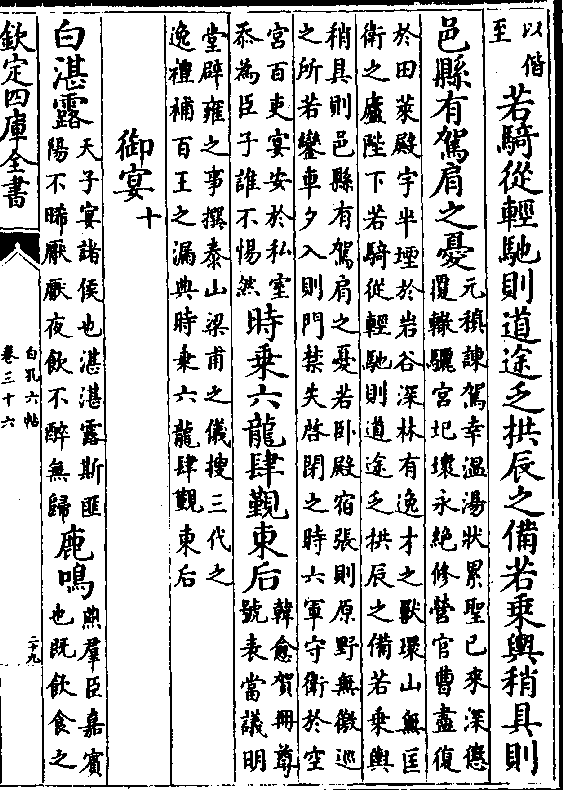 以偕
至
若騎從輕馳則道途乏拱辰之備若乘輿稍具則
邑縣有駕肩之憂
元稹諫駕幸溫湯狀累聖已來深懲
覆轍驪宮圮壞永絕修營官曹盡復
於田萊殿宇半堙於岩谷深林有逸才之獸環山無匡
衛之廬陛下若騎從輕馳則道途乏拱辰之備若乘輿
稍具則邑縣有駕肩之憂若卧殿宿張則原野無徼巡
之所若鑾車夕入則門禁失啓閉之時六軍守衛於空
宮百吏宴安於私室
忝為臣子誰不惕然
時乘六龍肆覲東后
韓愈賀冊尊
號表當議明
堂辟雍之事撰泰山梁甫之儀搜三代之
逸禮補百王之漏典時乘六龍肆覲東后
御宴十
白湛露
天子宴諸侯也湛湛露斯匪
陽不晞厭厭夜飲不醉無歸
鹿鳴
燕羣臣嘉賓
也既飲食之
欽定四庫全書
白孔六帖
卷三十六
二十九